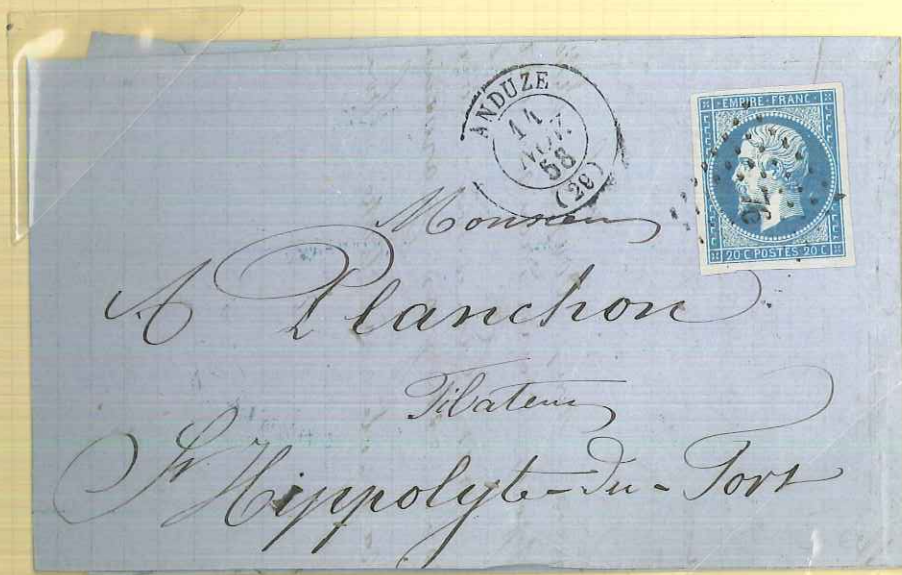 ANDUZE
14
NOV.
58
(29)
EMPIRE · FRANC ·
20 C POSTES 20 C
Monsieur
A Planchon
Filateur
St Hippolyte-du-Fort